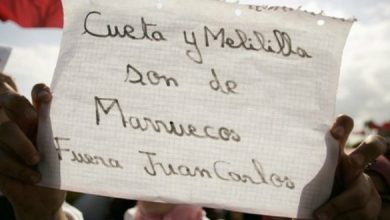 Cueta y Melililla
son de
Marruecos
Fuera Juan Carlos